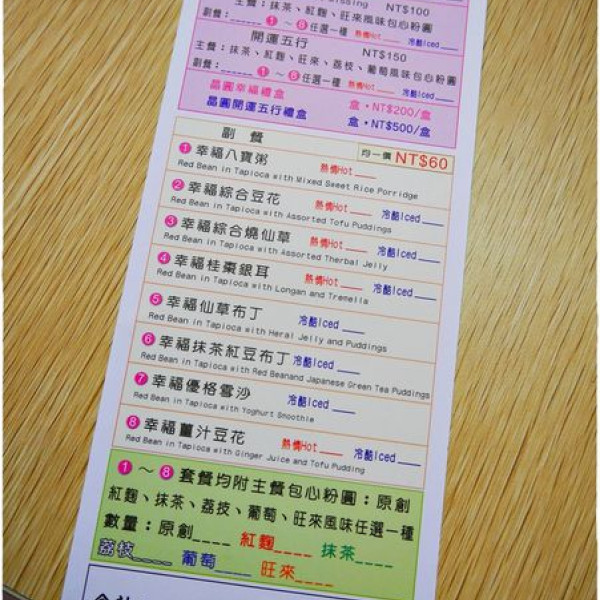 NT$100
主餐：抹茶、紅麴、旺來風味包心粉圓
副餐：_____ 1 ～ 8 任選一種 熱情Hot____ 冷酷Iced____
開運五行 NT$150
主餐：抹茶、紅麴、旺來、荔枝、葡萄風味包心粉圓
副餐：_____ 1 ～ 8 任選一種 熱情Hot____ 冷酷Iced____
晶圓幸福禮盒 盒·NT$200/盒
晶圓開運五行禮盒 盒·NT$500/盒
副餐 均一價 NT$60
1 幸福八寶粥 熱情Hot____
Red Bean in Tapioca with Mixed Sweet Rice Porridge
2 幸福綜合豆花 熱情Hot____ 冷酷Iced____
Red Bean in Tapioca with Assorted Tofu Puddings
3 幸福綜合燒仙草 熱情Hot____ 冷酷Iced____
Red Bean in Tapioca with Assorted Therbal Jelly
4 幸福桂棗銀耳 熱情Hot____ 冷酷Iced____
Red Bean in Tapioca with Longan and Tremella
5 幸福仙草布丁 冷酷Iced____
Red Bean in Tapioca with Heral Jelly and Puddings
6 幸福抹茶紅豆布丁 冷酷Iced____
Red Bean in Tapioca with Red Beanand Japanese Green Tea Puddings
7 幸福優格雪沙 冷酷Iced____
Red Bean in Tapioca with Yoghurt Smoothie
8 幸福薑汁豆花 熱情Hot____ 冷酷Iced____
Red Bean in Tapioca with Ginger Juice and Tofu Pudding
1 ～ 8 套餐均附主餐包心粉圓：原創
紅麴、抹茶、荔枝、葡萄、旺來風味任選一種
數量：原創____ 紅麴____ 抹茶____
荔枝____ 葡萄____ 旺來____